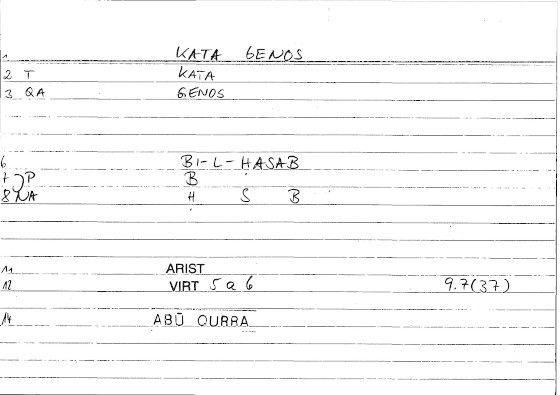 1 KATA GENOS
2 T KATA
3 QA GENOS
6 BI-L-ḤASAB
7 P B
8 NA Ḥ S B
11 ARIST
12 VIRT 5 a 6 9.7(37)
14 ABŪ QURRA